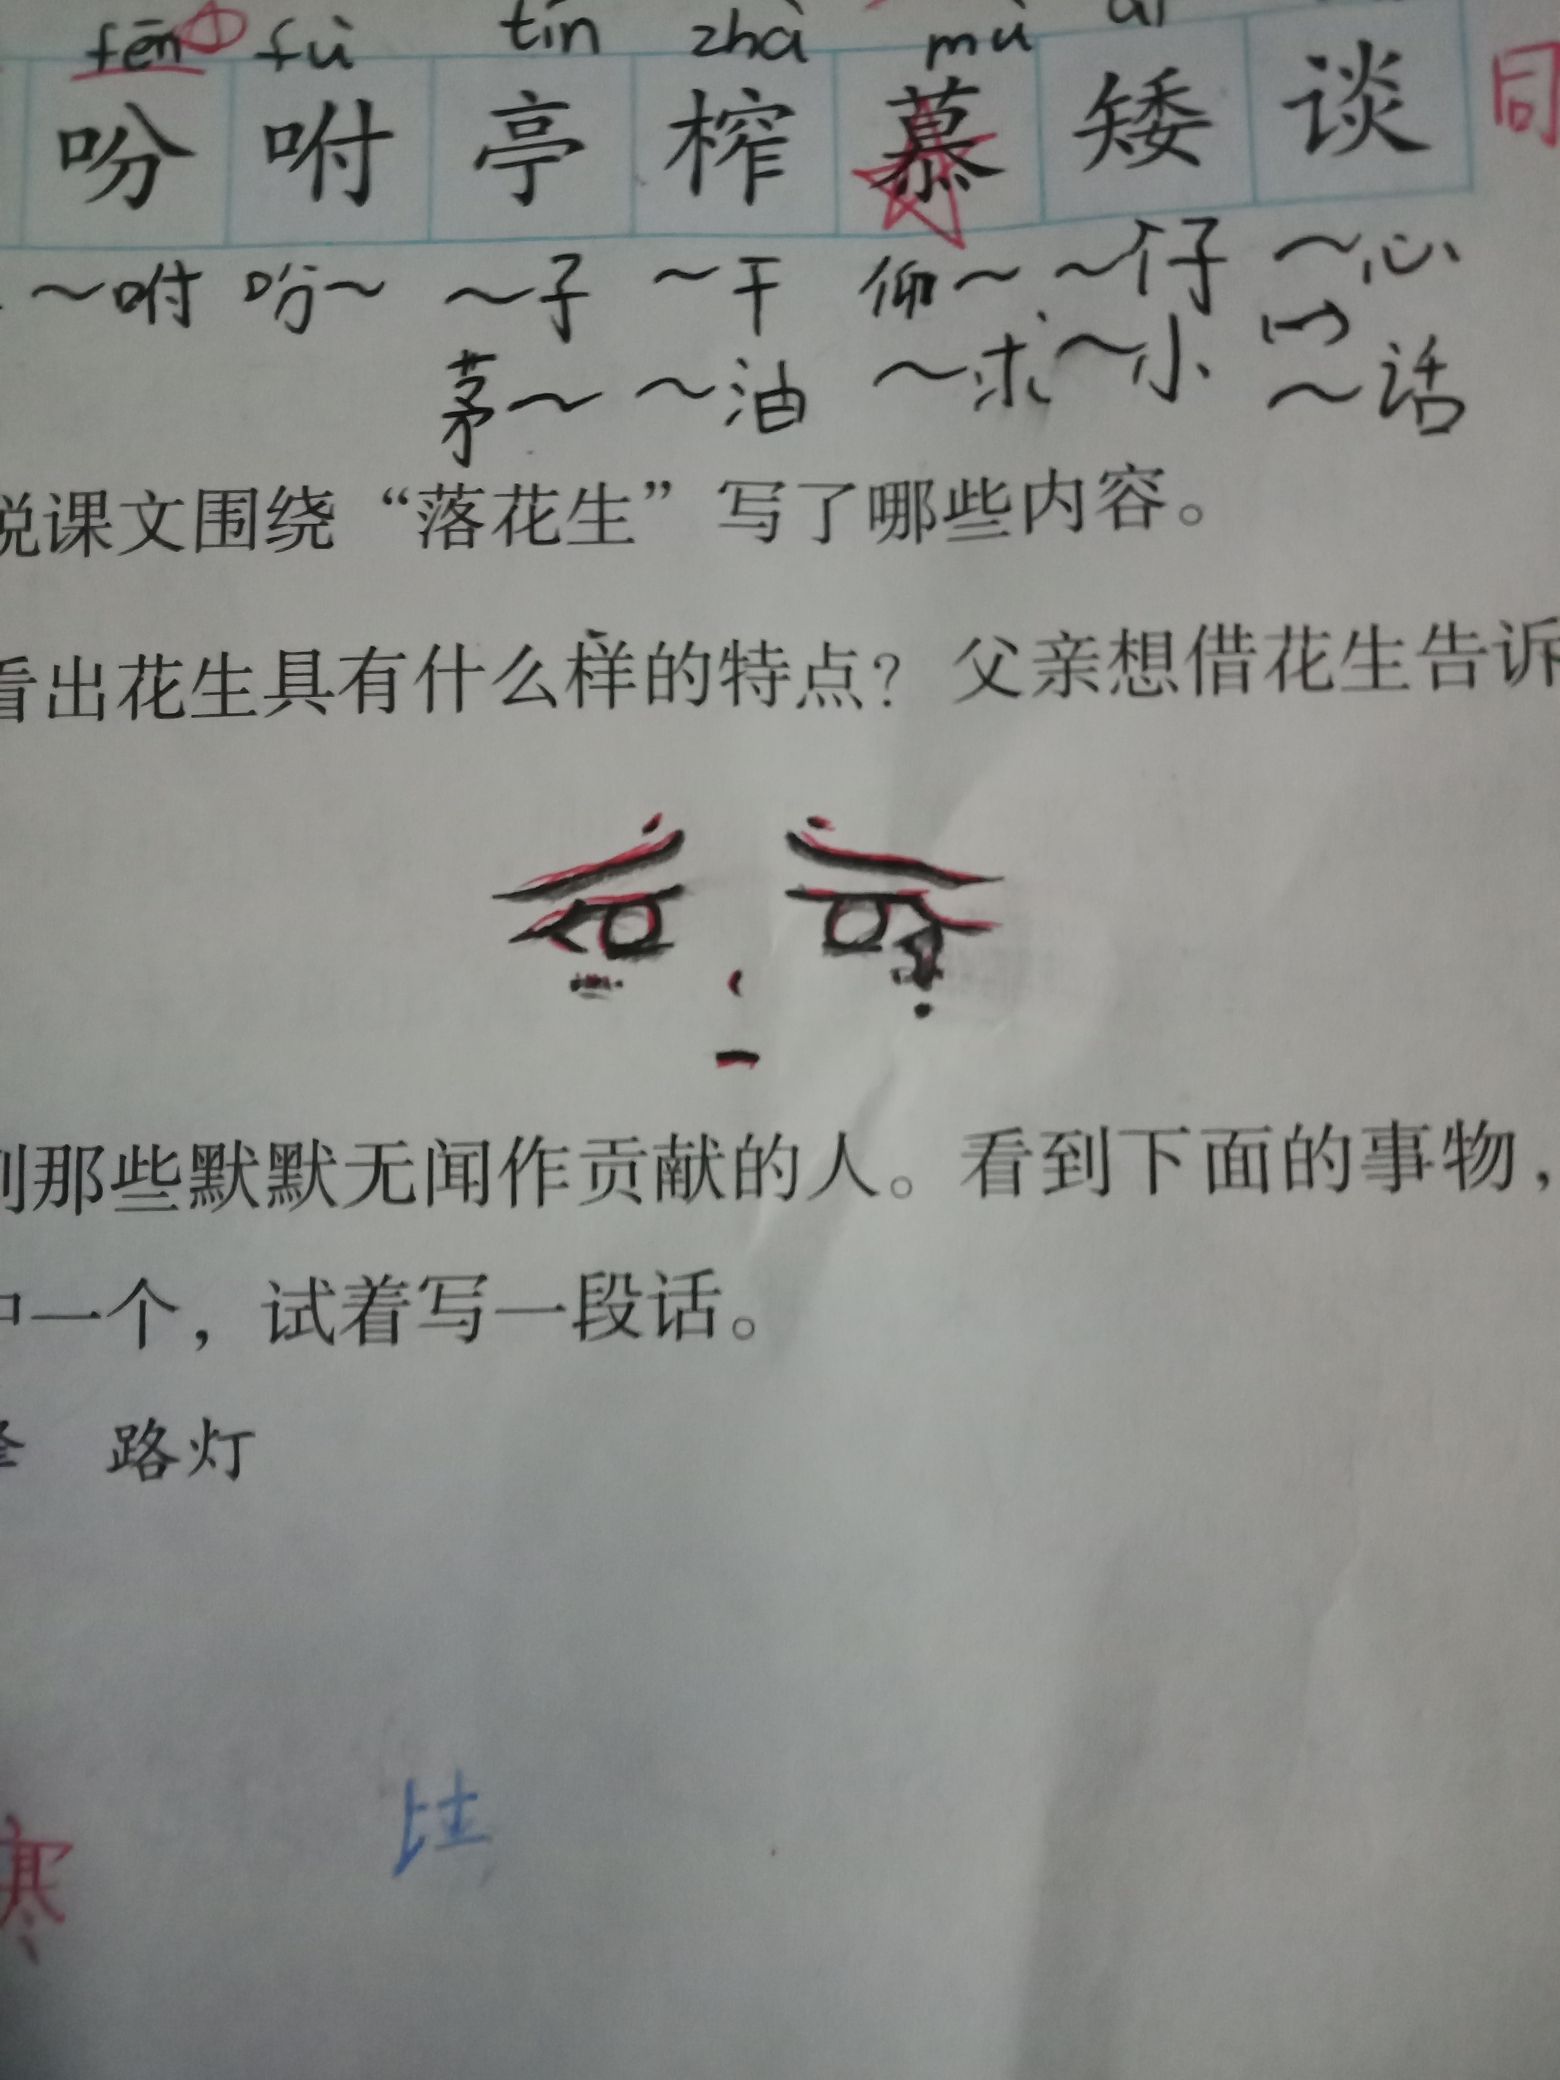 fēn fù tín zhà mù
吩 咐 亭 榨 慕 矮 谈 同
～咐 吩～ ～子 ～干 仰～ ～仔 ～心
茅～ ～油 ～求 ～小 ～话
说课文围绕“落花生”写了哪些内容。
看出花生具有什么样的特点？父亲想借花生告诉
到那些默默无闻作贡献的人。看到下面的事物，
中一个，试着写一段话。
路灯